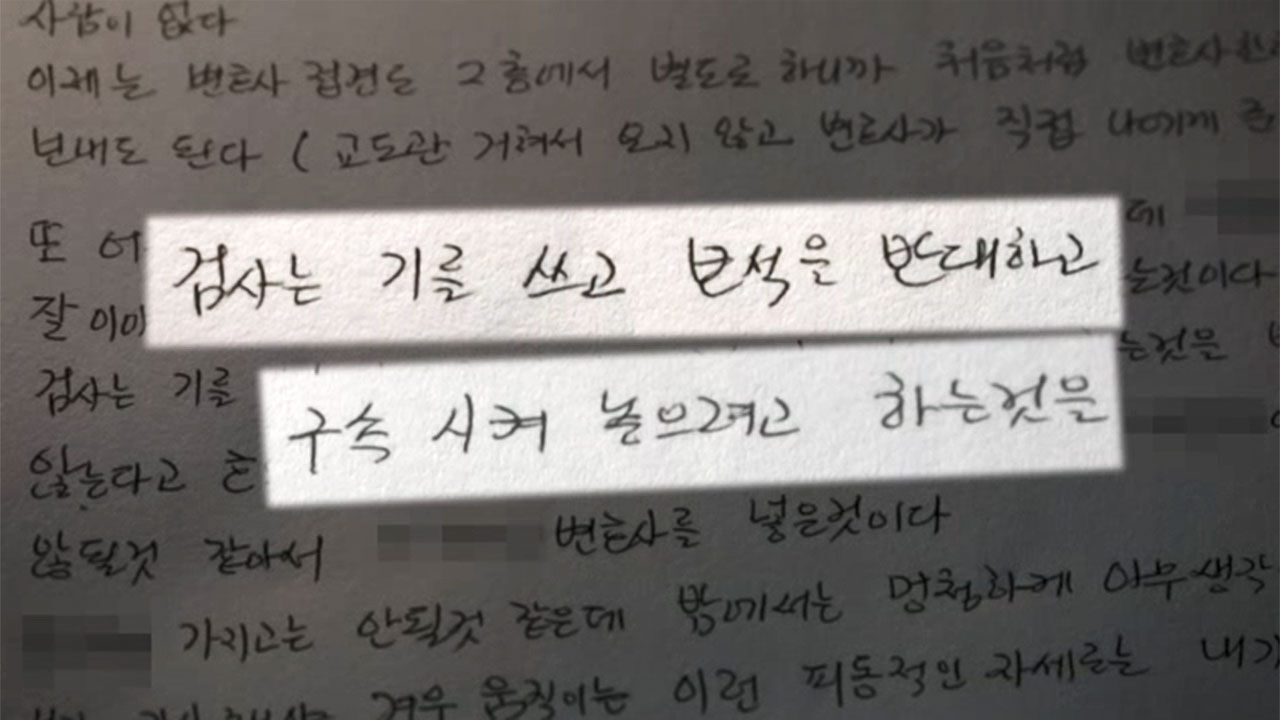 사람이 없다
이제는 변호사 접견도 2층에서 별도로 하니까 처음처럼 변호사한
보내도 된다 (교도관 거쳐서 오지 않고 변호사가 직접 나에게
또 어 데
검사는 기를 쓰고 보석을 반대하고
잘 이야 는것이다
검사는 기를 는것은
구속 시켜 놓으려고 하는것을
않는다고
않될것 같아서 변호사를 넣은것이다
가지고는 안될것 같은데 밖에서는 멍청하게 아무생각
겨우 움직이는 이런 피동적인 자세로는 내가